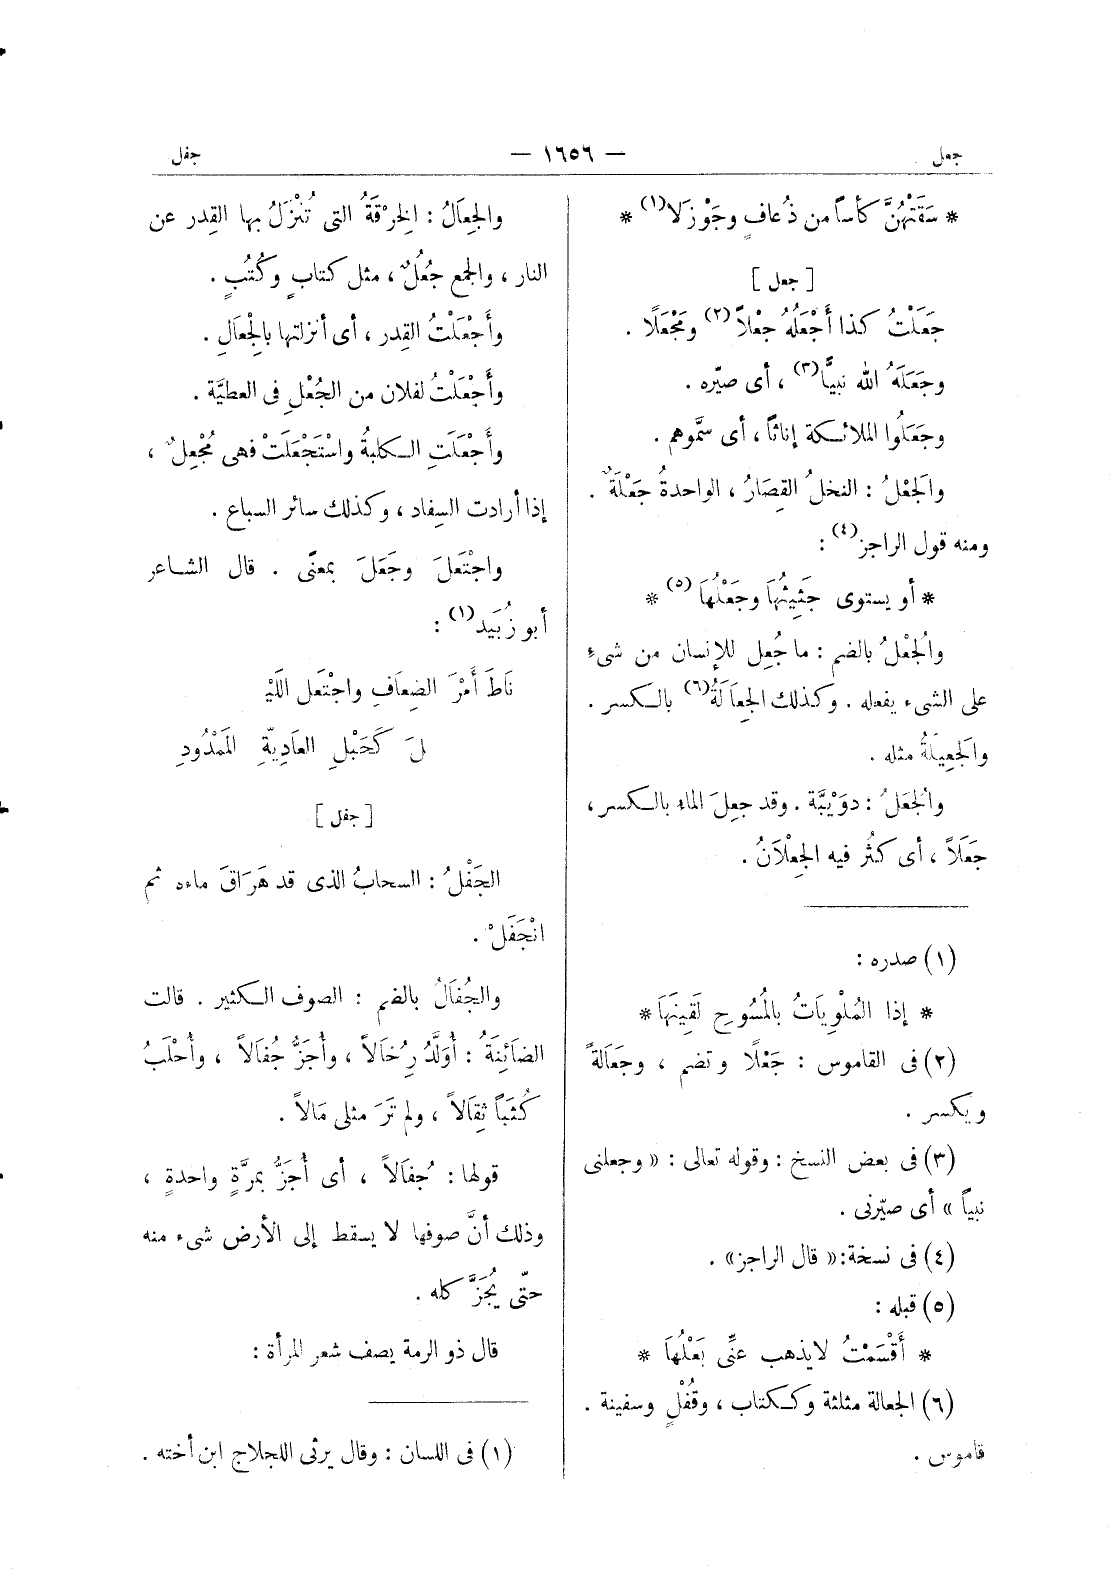 جعل
— ١٦٥٦ —
جفل
* سَقَتْهُنَّ كأساً من ذُعافٍ وجَوْزَلا(١) *
[ جعل ]
جَعَلْتُ كذا أَجْعَلُهُ جعْلاً(٢) ومَجْعَلًا .
وجَعَلَهُ الله نبيًّا(٣) ، أى صيّره .
وجَعَلُوا الملائكة إناثاً ، أى سمَّوهم .
والجَعْلُ : النخلُ القِصَارُ ، الواحدةُ جَعْلَةٌ .
ومنه قول الراجز(٤) :
* أو يستوى جَثِيثُهَا وجَعْلُهَا(٥) *
والجُعْلُ بالضم : ما جُعِل للإنسان من شىءٍ
على الشىء يفعله . وكذلك الجِعَالَةُ(٦) بالكسر .
والجَعِيلَةُ مثله .
والجُعَلُ : دوَيْبَّة . وقد جعِلَ الماء بالكسر ،
جَعَلاً ، أى كثُر فيه الجِعْلاَنُ .
(١) صدره :
* إذا المُلْوِيَاتُ بالمُسُوحِ لَقِينَهَا *
(٢) فى القاموس : جَعْلًا وتضم ، وجَعَالةً
ويكسر .
(٣) فى بعض النسخ : وقوله تعالى : « وجعلنى
نبياً » أى صيّرنى .
(٤) فى نسخة: « قال الراجز» .
(٥) قبله :
* أَقْسَمْتُ لايذهب عنِّى بَعْلُهَا *
(٦) الجعالة مثلثة وككتاب ، وقُفْلٍ وسفينة .
قاموس .
والجِعاَلُ : الخِرْقَةُ التى تُنْزَلُ بها القِدر عن
النار ، والجمع جُعُلٌ ، مثل كتابٍ وكُتُبٍ .
وأَجْعَلْتُ القِدر ، أى أنزلتها بالجِعاَلِ .
وأَجْعَلْتُ لفلان من الجُعْلِ فى العطيَّة .
وأَجْعَلَتِ الكلبةُ واسْتَجْعَلَتْ فهى مُجْعِلٌ ،
إذا أرادت السِفاد ، وكذلك سائر السباع .
واجْتَعَلَ وجَعَلَ بمعنًى . قال الشاعر
أبو زُبَيد(١) :
نَاطَ أَمْرَ الضِعاَفِ واجْتَعل اللَيْ
لَ كَحَبْلِ العاَدِيّةِ المَمْدُودِ
[ جفل ]
الجَفْلُ : السحابُ الذى قد هَرَاقَ ماءه ثم
انْجَفَلَ .
والجُفاَلُ بالضم : الصوف الكثير . قالت
الضاَئِنَةُ : أُوَلَّدُ رِخَالاً ، وأُجَزُّ جُفاَلاً ، وأُحْلَبُ
كُثَباً ثِقاَلاً ، ولم تَرَ مثلى مَالاً .
قولها : جُفاَلاً ، أى أُجَزُّ بمرَّةٍ واحدةٍ ،
وذلك أنَّ صوفها لا يسقط إلى الأرض شىء منه
حتّى يُجَزَّ كله .
قال ذو الرمة يصف شعر المرأة :
(١) فى اللسان : وقال يرثى اللجلاج ابن أخته .